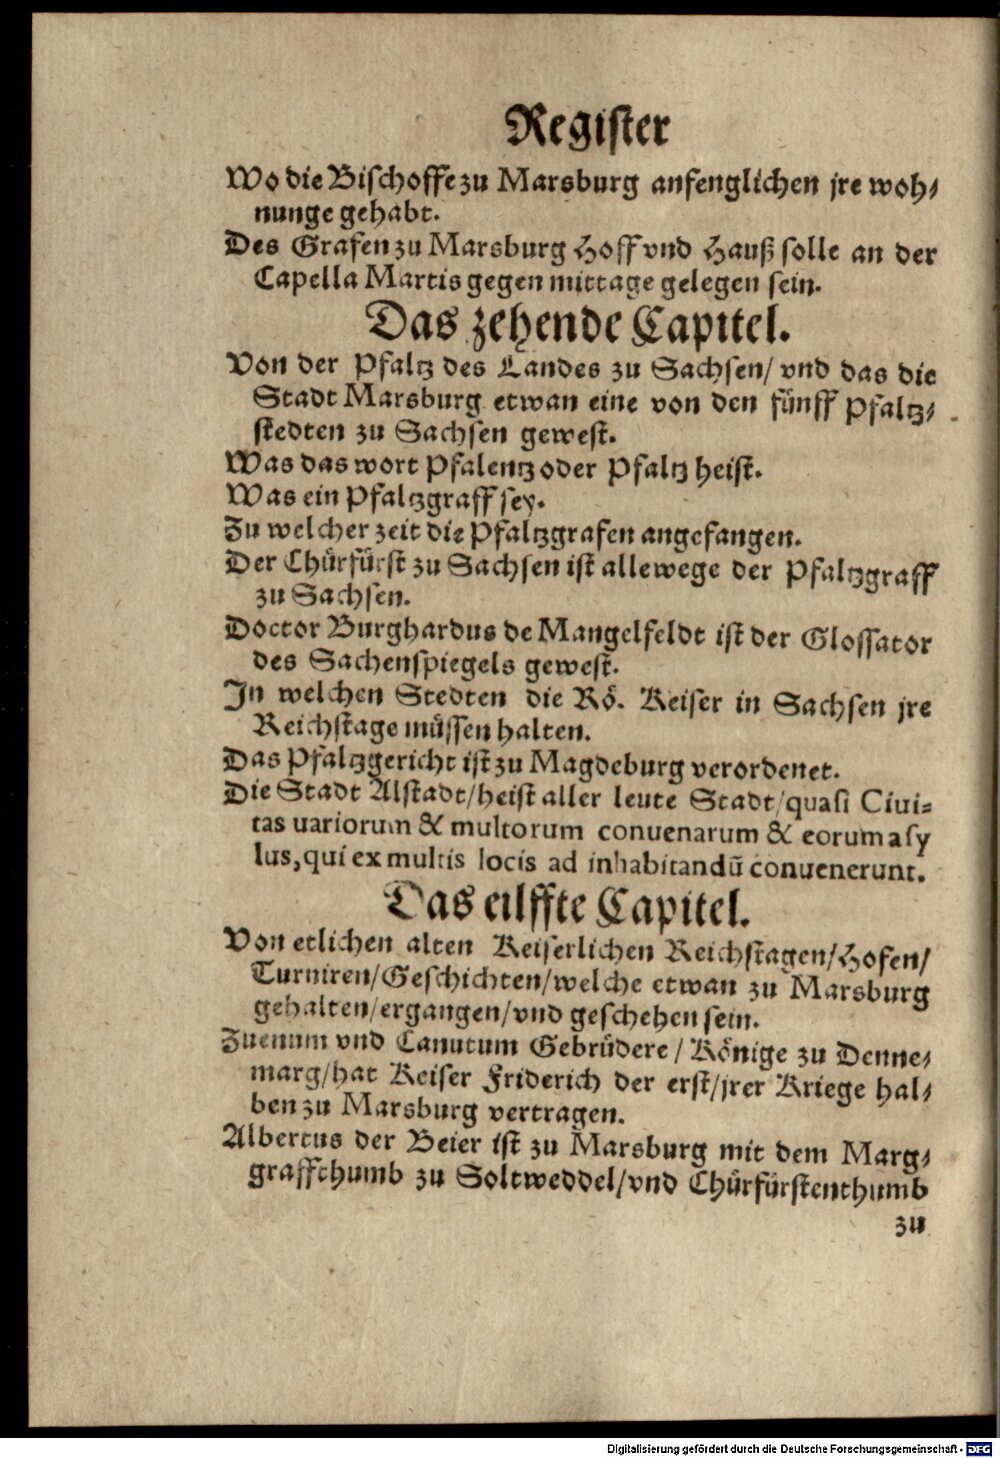 Register
Wo die Bischoffe zu Marsburg anfenglichen jre woh⸗
nunge gehabt.
Des Grafen zu Marsburg Hoff vnd Hauß solle an der
Capella Martis gegen mittage gelegen sein.
Das zehende Capitel.
Von der Pfaltz des Landes zu Sachsen/ vnd das die
Stadt Marsburg etwan eine von den fünff Pfaltz⸗
stedten zu Sachsen gewest.
Was das wort Pfalentz oder Pfaltz heist.
Was ein Pfaltzgraff sey.
Zu welcher zeit die Pfaltzgrafen angefangen.
Der Chürfürst zu Sachsen ist allewege der Pfaltzgraff
zu Sachsen.
Doctor Burghardus de Mangelfeldt ist der Glossator
des Sachenspiegels gewest.
In welchen Stedten die Rö. Keiser in Sachsen jre
Reichstage müssen halten.
Das Pfaltzgericht ist zu Magdeburg verordenet.
Die Stadt Alstadt/heist aller leute Stadt/quasi Ciui⸗
tas uariorum & multorum conuenarum & eorum asy
lus, qui ex multis locis ad inhabitandū conuenerunt.
Das eilffte Capitel.
Von etlichen alten Keiserlichen Reichstagen/Hofen/
Turniren/Geschichten/welche etwan zu Marsburg
gehalten/ergangen/vnd geschehen sein.
Zuenum vnd Canutum Gebrüdere / Könige zu Denne⸗
marg/hat Keiser Friderich der erst/jrer Kriege hal⸗
ben zu Marsburg vertragen.
Albertus der Beier ist zu Marsburg mit dem Marg⸗
graffthumb zu Soltweddel/vnd Chürfürstenthumb
zu
Digitalisierung gefördert durch die Deutsche Forschungsgemeinschaft - DFG